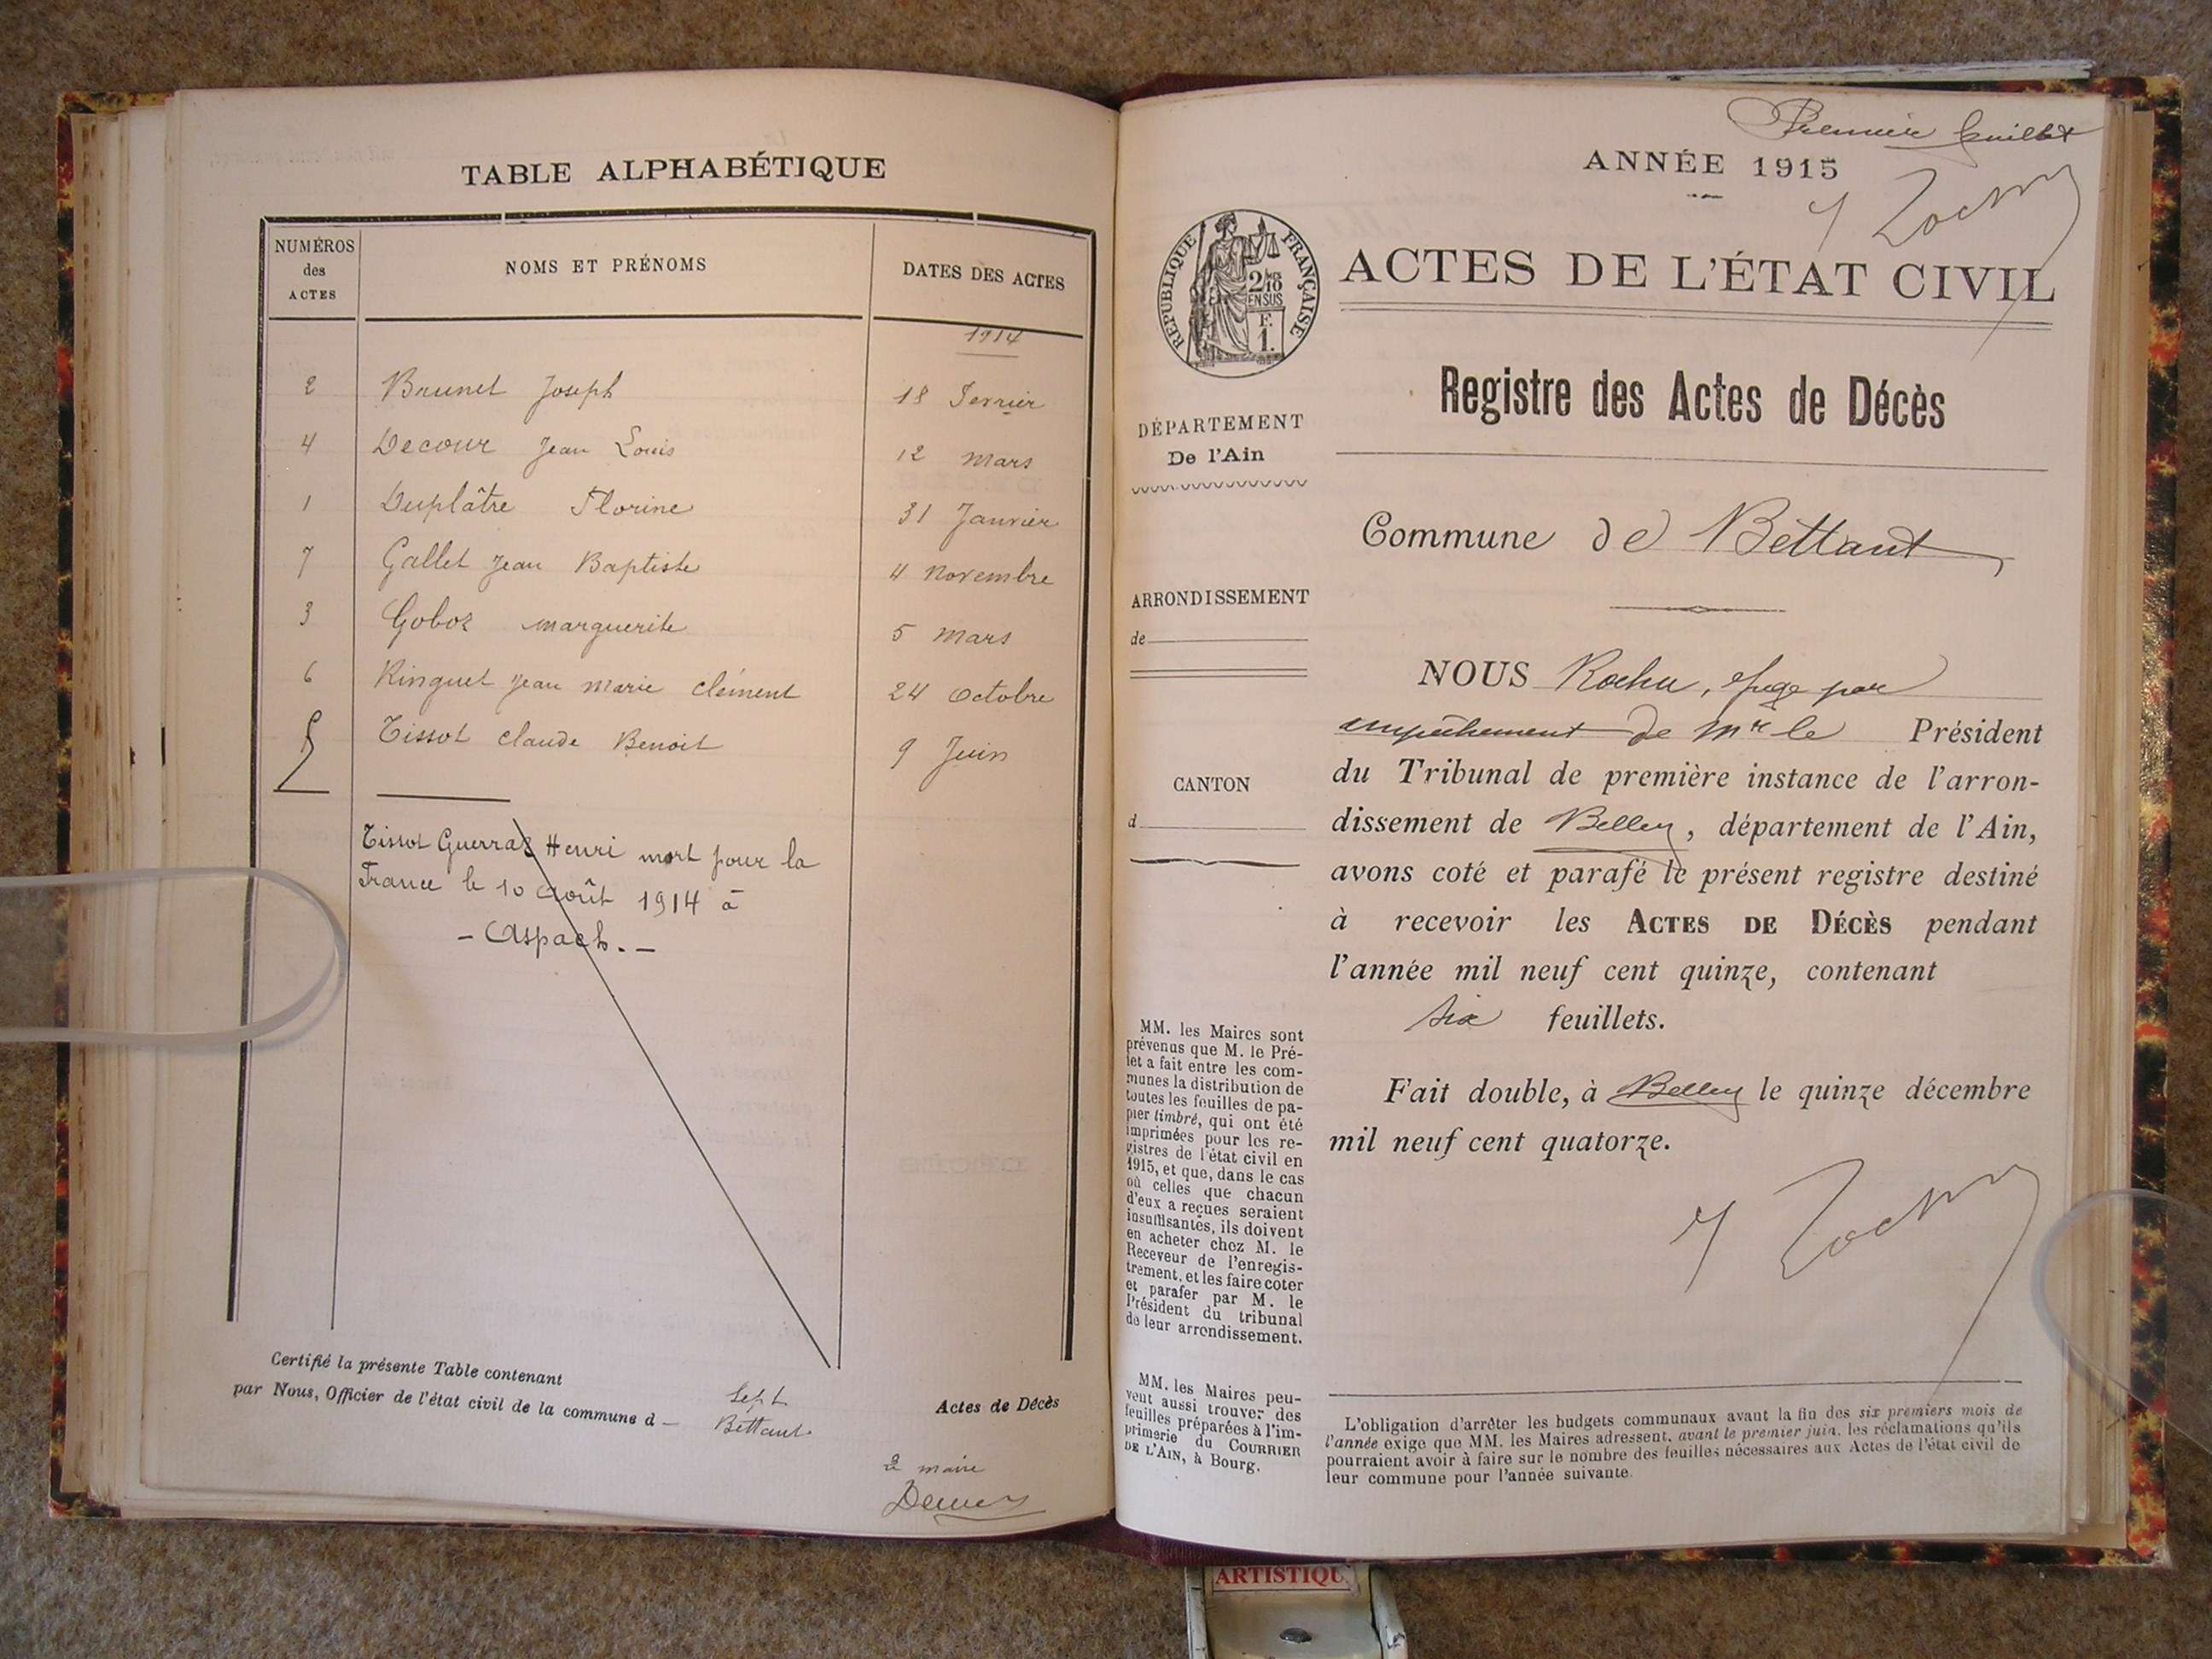 TABLE ALPHABÉTIQUE
NUMÉROS des ACTES
NOMS ET PRÉNOMS
DATES DES ACTES
1914
2 Brunet Joseph 18 Fevrier
4 Decour Jean Louis 12 mars
1 Duplâtre Florine 31 Janvier
7 Gallet Jean Baptiste 4 novembre
3 Goboz marguerite 5 mars
6 Ringuet Jean Marie Clément 24 Octobre
5 Tissot Claude Benoit 9 Juin
Tissot Guerraz Henri mort pour la
France le 10 Août 1914 à
- Aspach. -
Certifié la présente Table contenant Sept Actes de Décès
par Nous, Officier de l'état civil de la commune d Bettant.
le maire
Premier feuillet
ANNÉE 1915
RÉPUBLIQUE FRANÇAISE
2/10
EN SUS
F.
1.
ACTES DE L'ÉTAT CIVIL
Registre des Actes de Décès
DÉPARTEMENT
De l'Ain
Commune de Bettant
ARRONDISSEMENT
de
CANTON
d
NOUS Rochu, Juge par
empêchement de Mr le Président
du Tribunal de première instance de l'arron-
dissement de Belley, département de l'Ain,
avons coté et parafé le présent registre destiné
à recevoir les ACTES DE DÉCÈS pendant
l'année mil neuf cent quinze, contenant
six feuillets.
Fait double, à Belley le quinze décembre
mil neuf cent quatorze.
MM. les Maires sont
prévenus que M. le Pré-
fet a fait entre les com-
munes la distribution de
toutes les feuilles de pa-
pier timbré, qui ont été
imprimées pour les re-
gistres de l'état civil en
1915, et que, dans le cas
où celles que chacun
d'eux a reçues seraient
insuffisantes, ils doivent
en acheter chez M. le
Receveur de l'enregis-
trement, et les faire coter
et parafer par M. le
Président du tribunal
de leur arrondissement.
MM. les Maires peu-
vent aussi trouver des
feuilles préparées à l'im-
primerie du COURRIER
DE L'AIN, à Bourg.
L'obligation d'arrêter les budgets communaux avant la fin des six premiers mois de
l'année exige que MM. les Maires adressent, avant le premier juin, les réclamations qu'ils
pourraient avoir à faire sur le nombre des feuilles nécessaires aux Actes de l'état civil de
leur commune pour l'année suivante.
ARTISTIQU